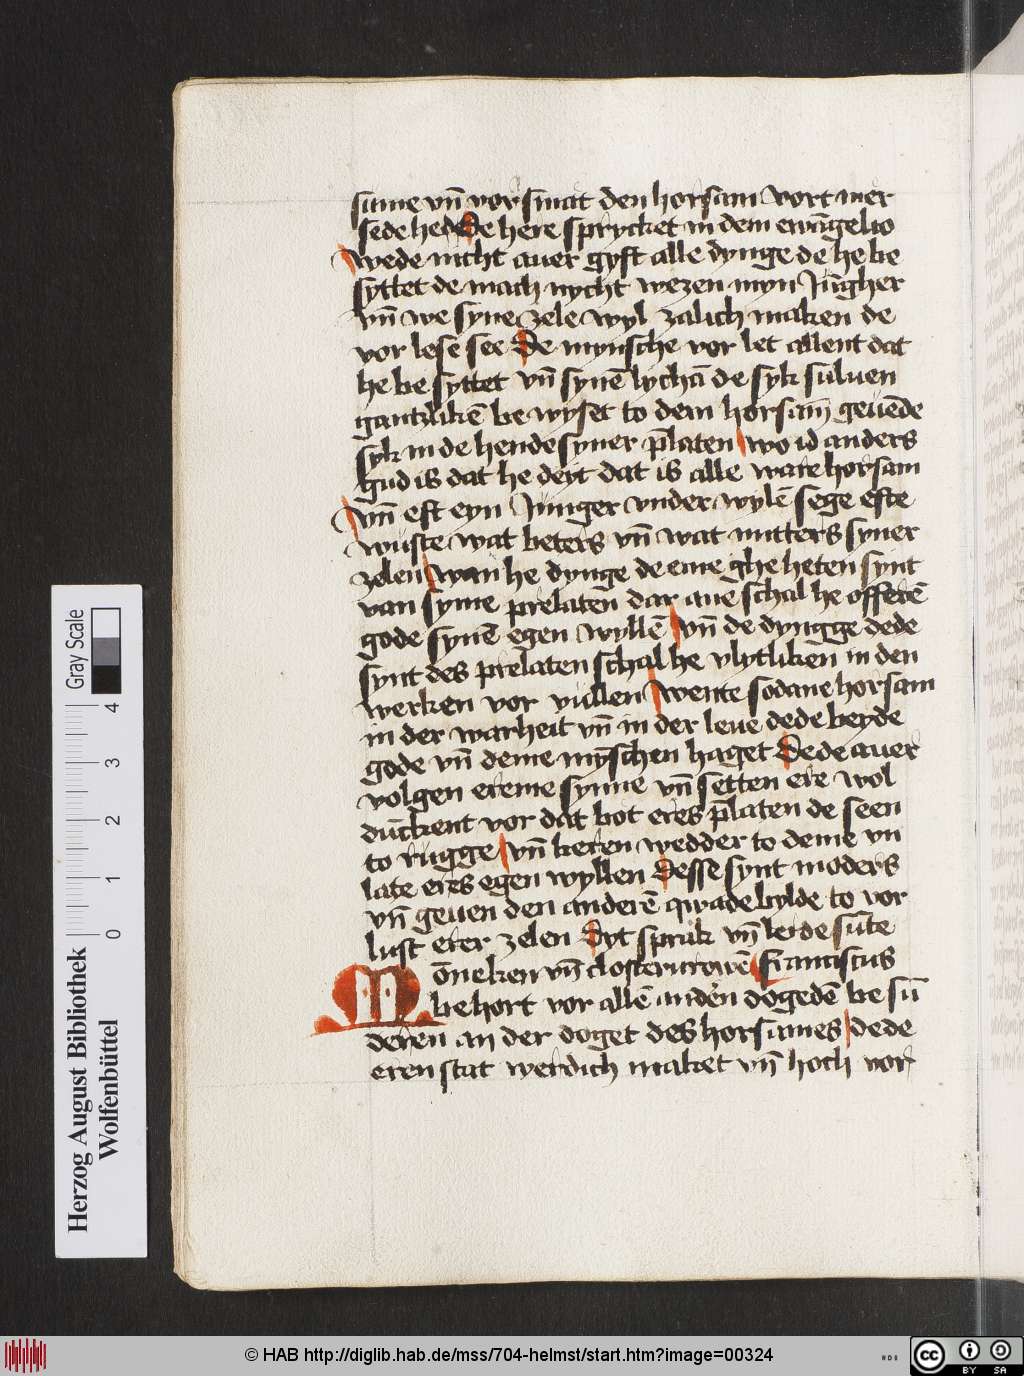 sinne vn̄ vor smat den horsam Wort mer
sede hed De here sprycket in dem ewāgelio
Wede nicht auer gyft alle dynge de he be
syttet de mach nycht wezen myn Jūgher
vn̄ we syne zele wyl zalich maken de
vor lese see De mynsche vor let allent dat
he be syttet vn̄ synē lychā de syk suluen
gantzlikē be wyset to dem horsam̄ geuēde
syk in de hende syner p̄laten wo id anders
gud is dat he deyt dat is alle ware horsam
Vn̄ eft eyn Junger vnder wylē sege efte
wuste wat beters vn̄ wat nutters syner
zelen wan he dynge de eme ghe heten synt
van syme prelaten dar aue schal he offerē
gode synē egen wyllē vn̄ de dyngge dede
synt des prelaten schal he vlytliken in den
werken vor vullen Wente sodane horsam
in der warheit vn̄ in der leue dede beyde
gode vn̄ deme mȳschen haget Dede auer
volgen ereme synne vn̄ setten ere wol
duckent vor dat bot eres p̄laten de seen
to rugge vn̄ keren wedder to deme vn
late eres egen wyllen Desse synt moders
vn̄ geuen den anderē qwade bylde to vor
lust erer zelen Dyt sprak vn̄ lerde sūte
Mōneken vn̄ closterurowē Franciscus
behort vor allē anderen dōgedē be sū
deren an der doget des horsames dede
eren stat werdich maket vn̄ hoch vor
Gray Scale
0 1 2 3 4
Herzog August Bibliothek
Wolfenbüttel
© HAB http://diglib.hab.de/mss/704-helmst/start.htm?image=00324
HAB
cc BY SA